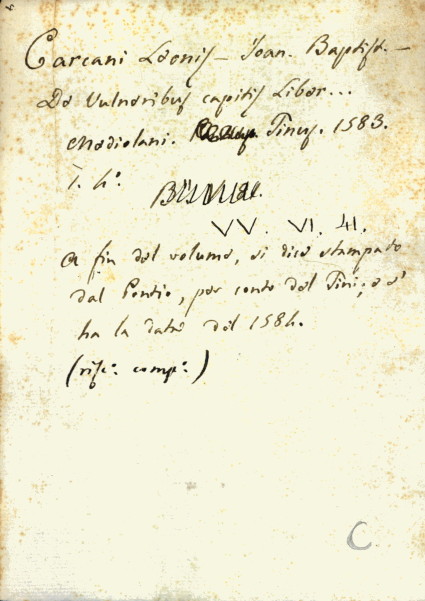 Carcani Leonis - Joan. Baptist. -
De Vulneribus capitis Liber...
Mediolani. Tinus. 1583.
i. 4°.
VV. VI. 41.
A fin del volume, si dice stampato
dal Pontio, per conto del Tini; e si
ha la data del 1584.
(rife: comp:)
C